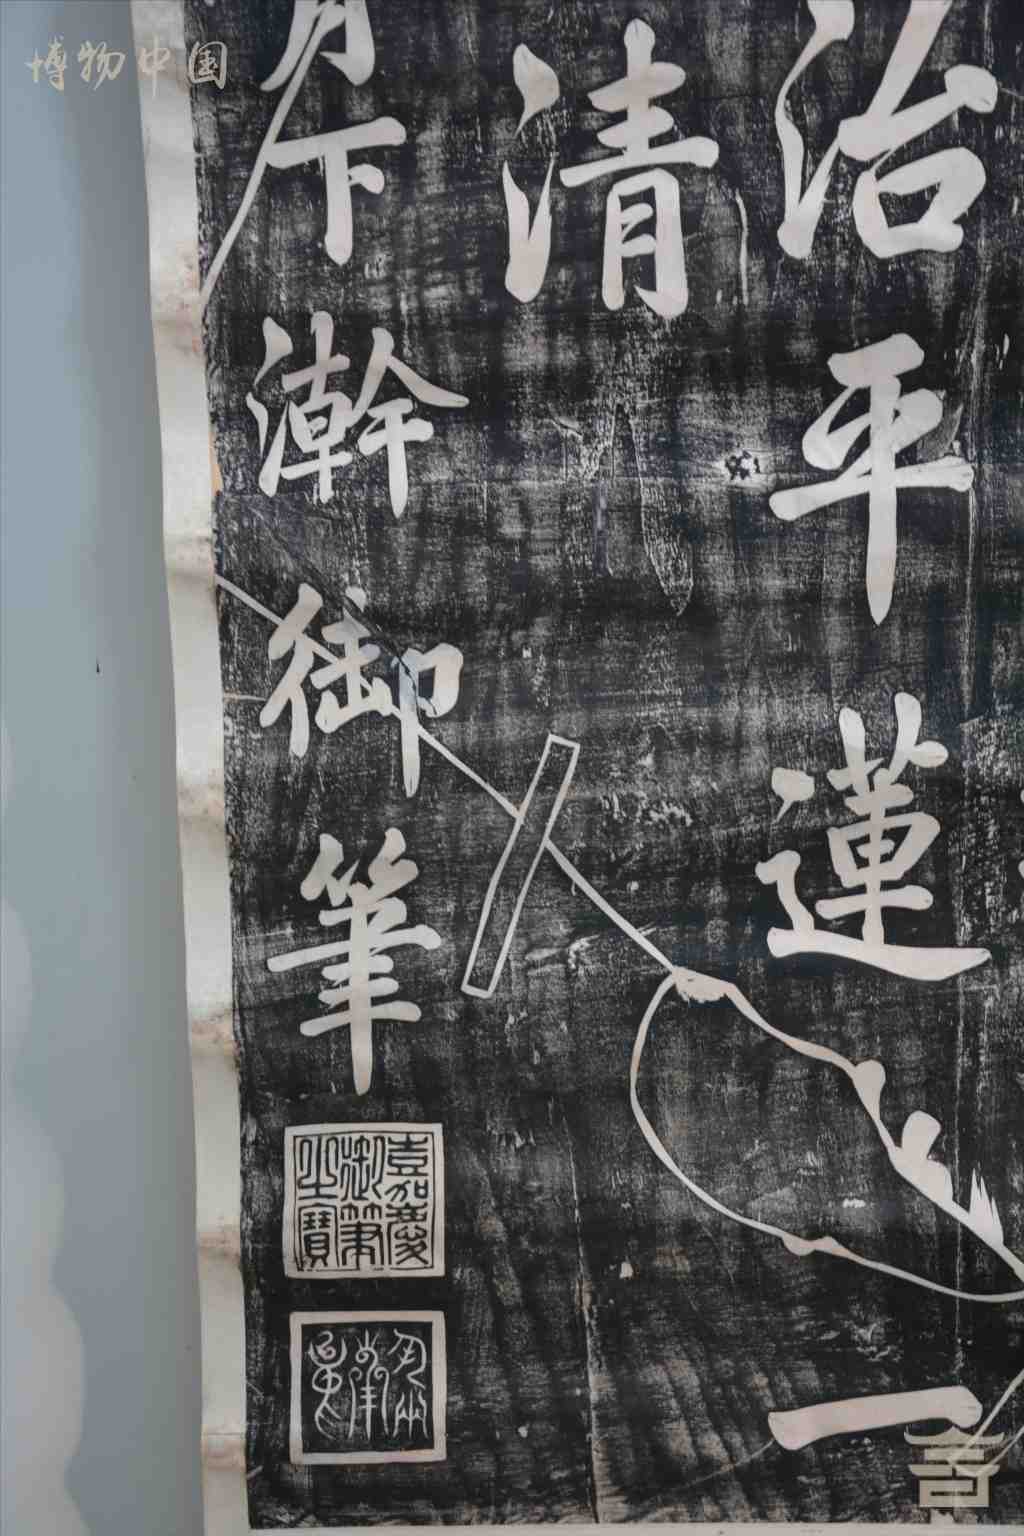 博物中国
治平蓮一
清
月下澣御筆
嘉慶
御筆
之寶